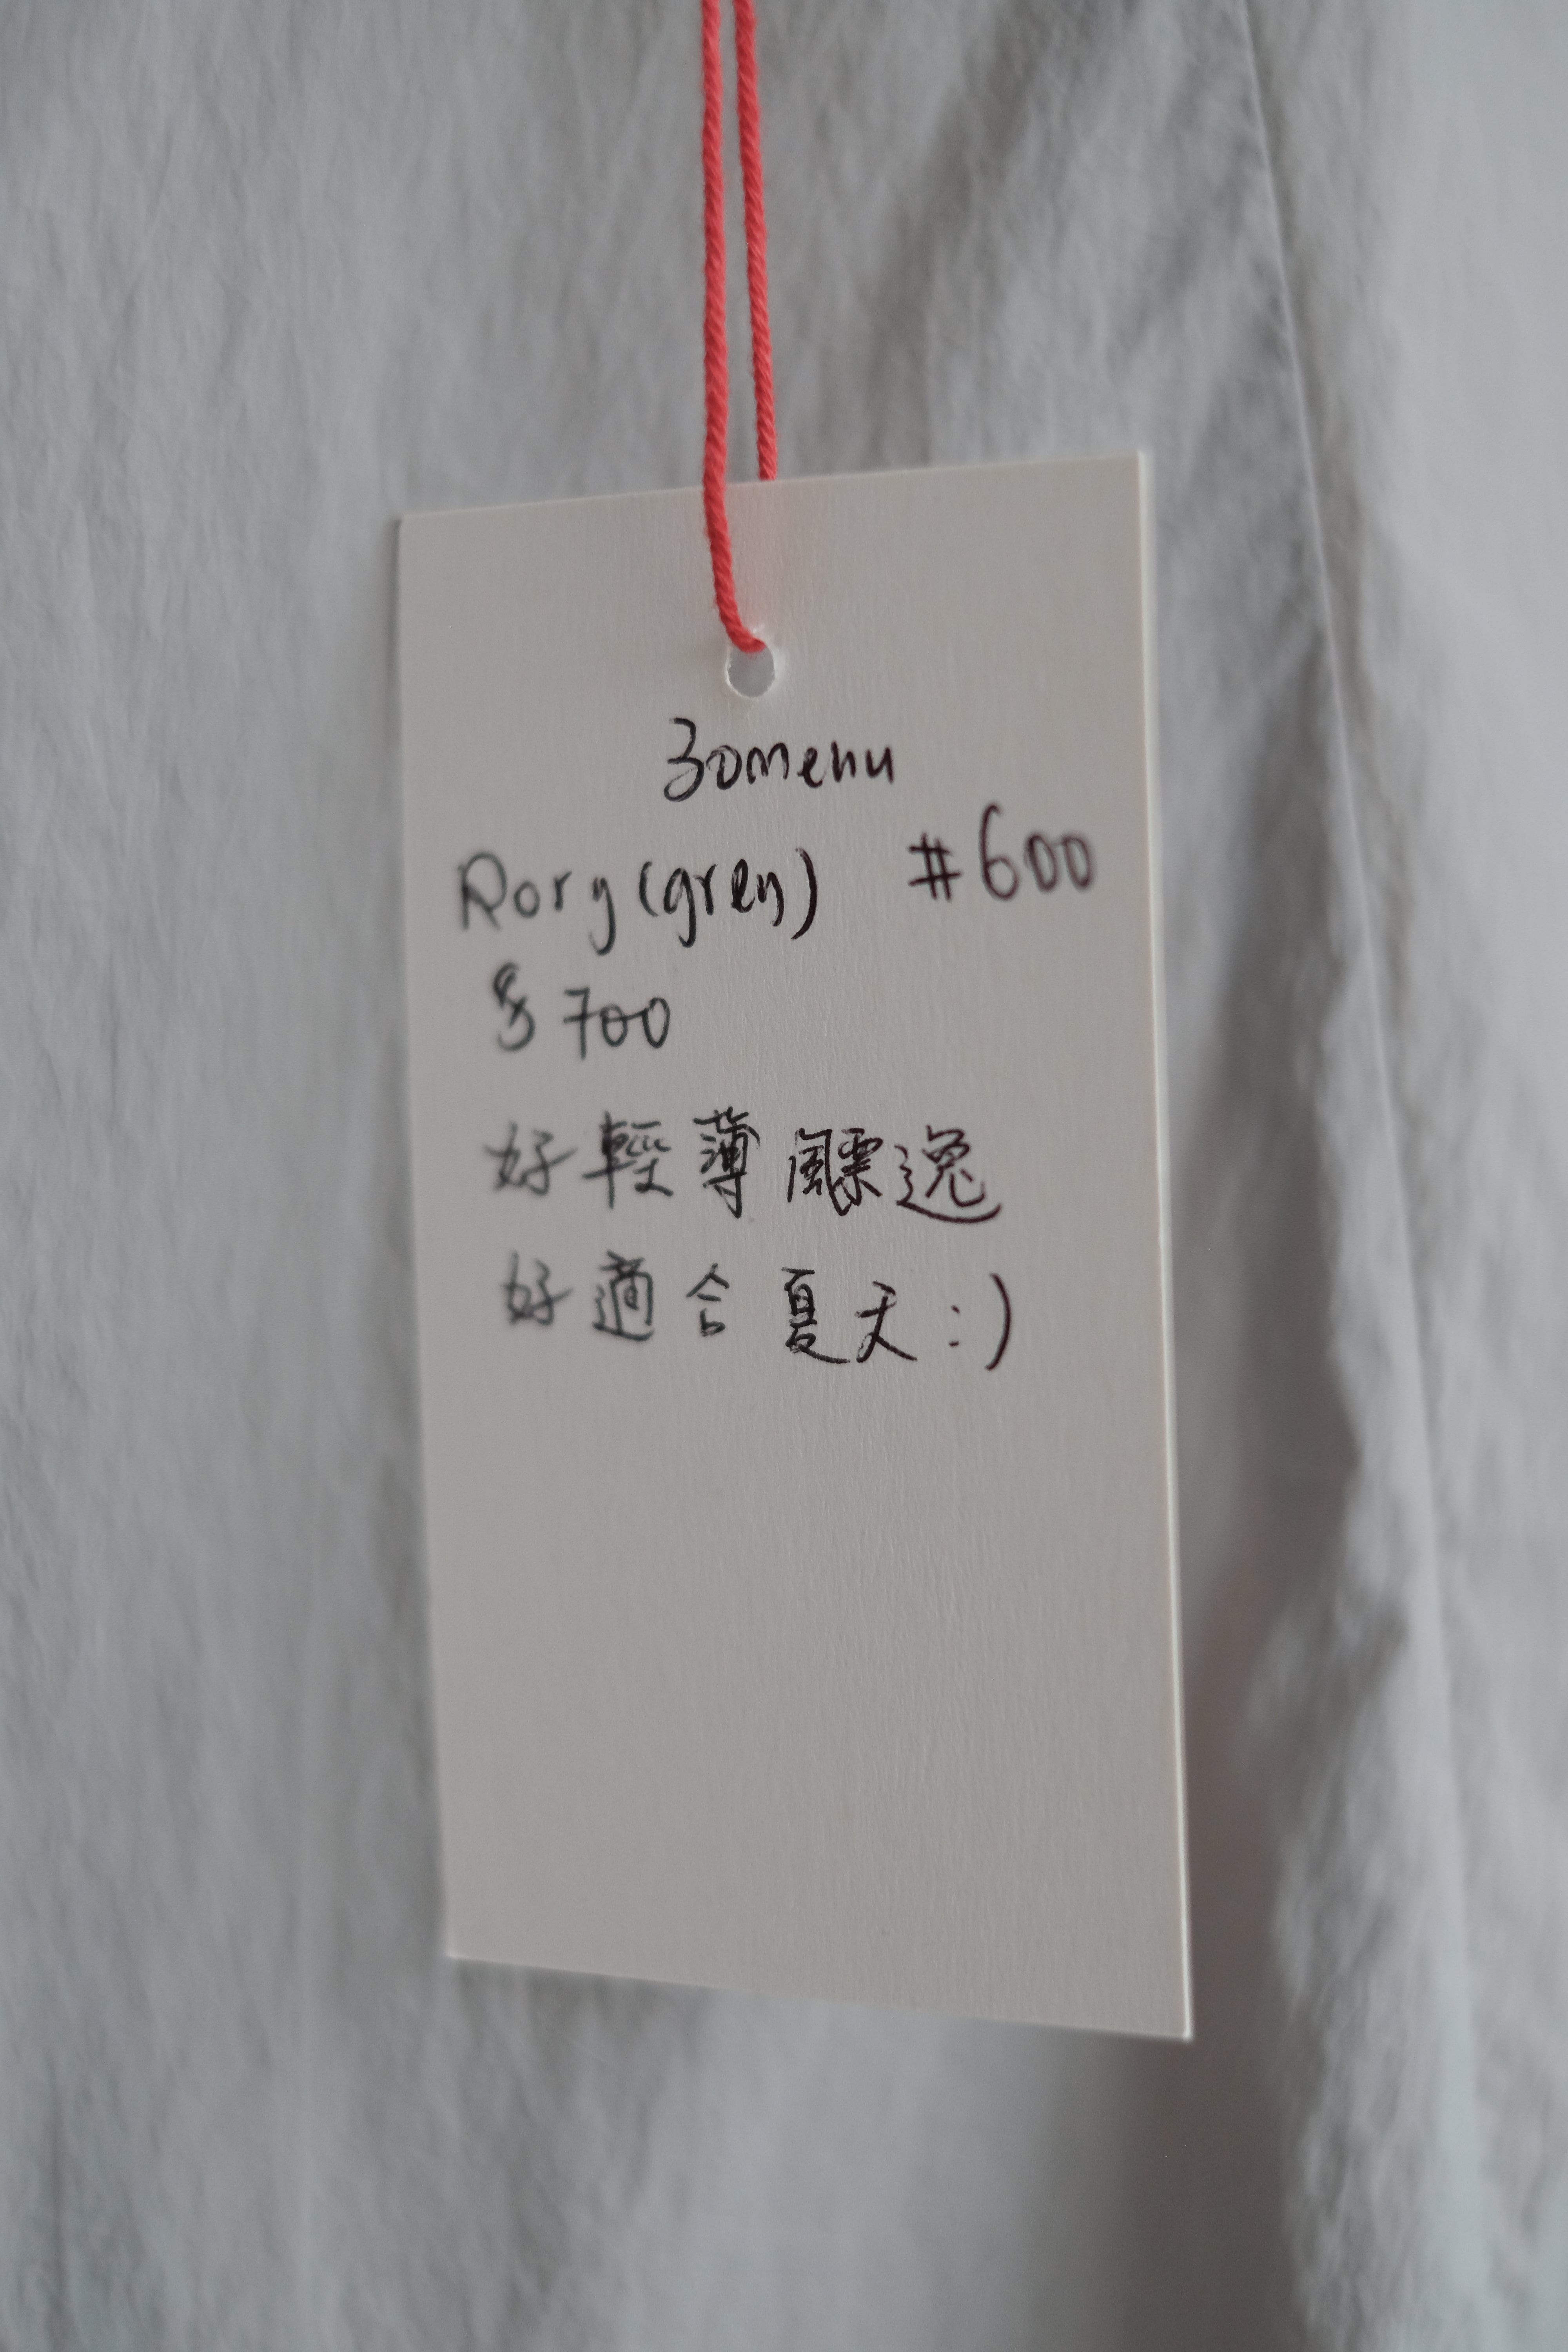 30menu
Rory (grey) #600
$700
好輕薄飄逸
好適合夏天:)